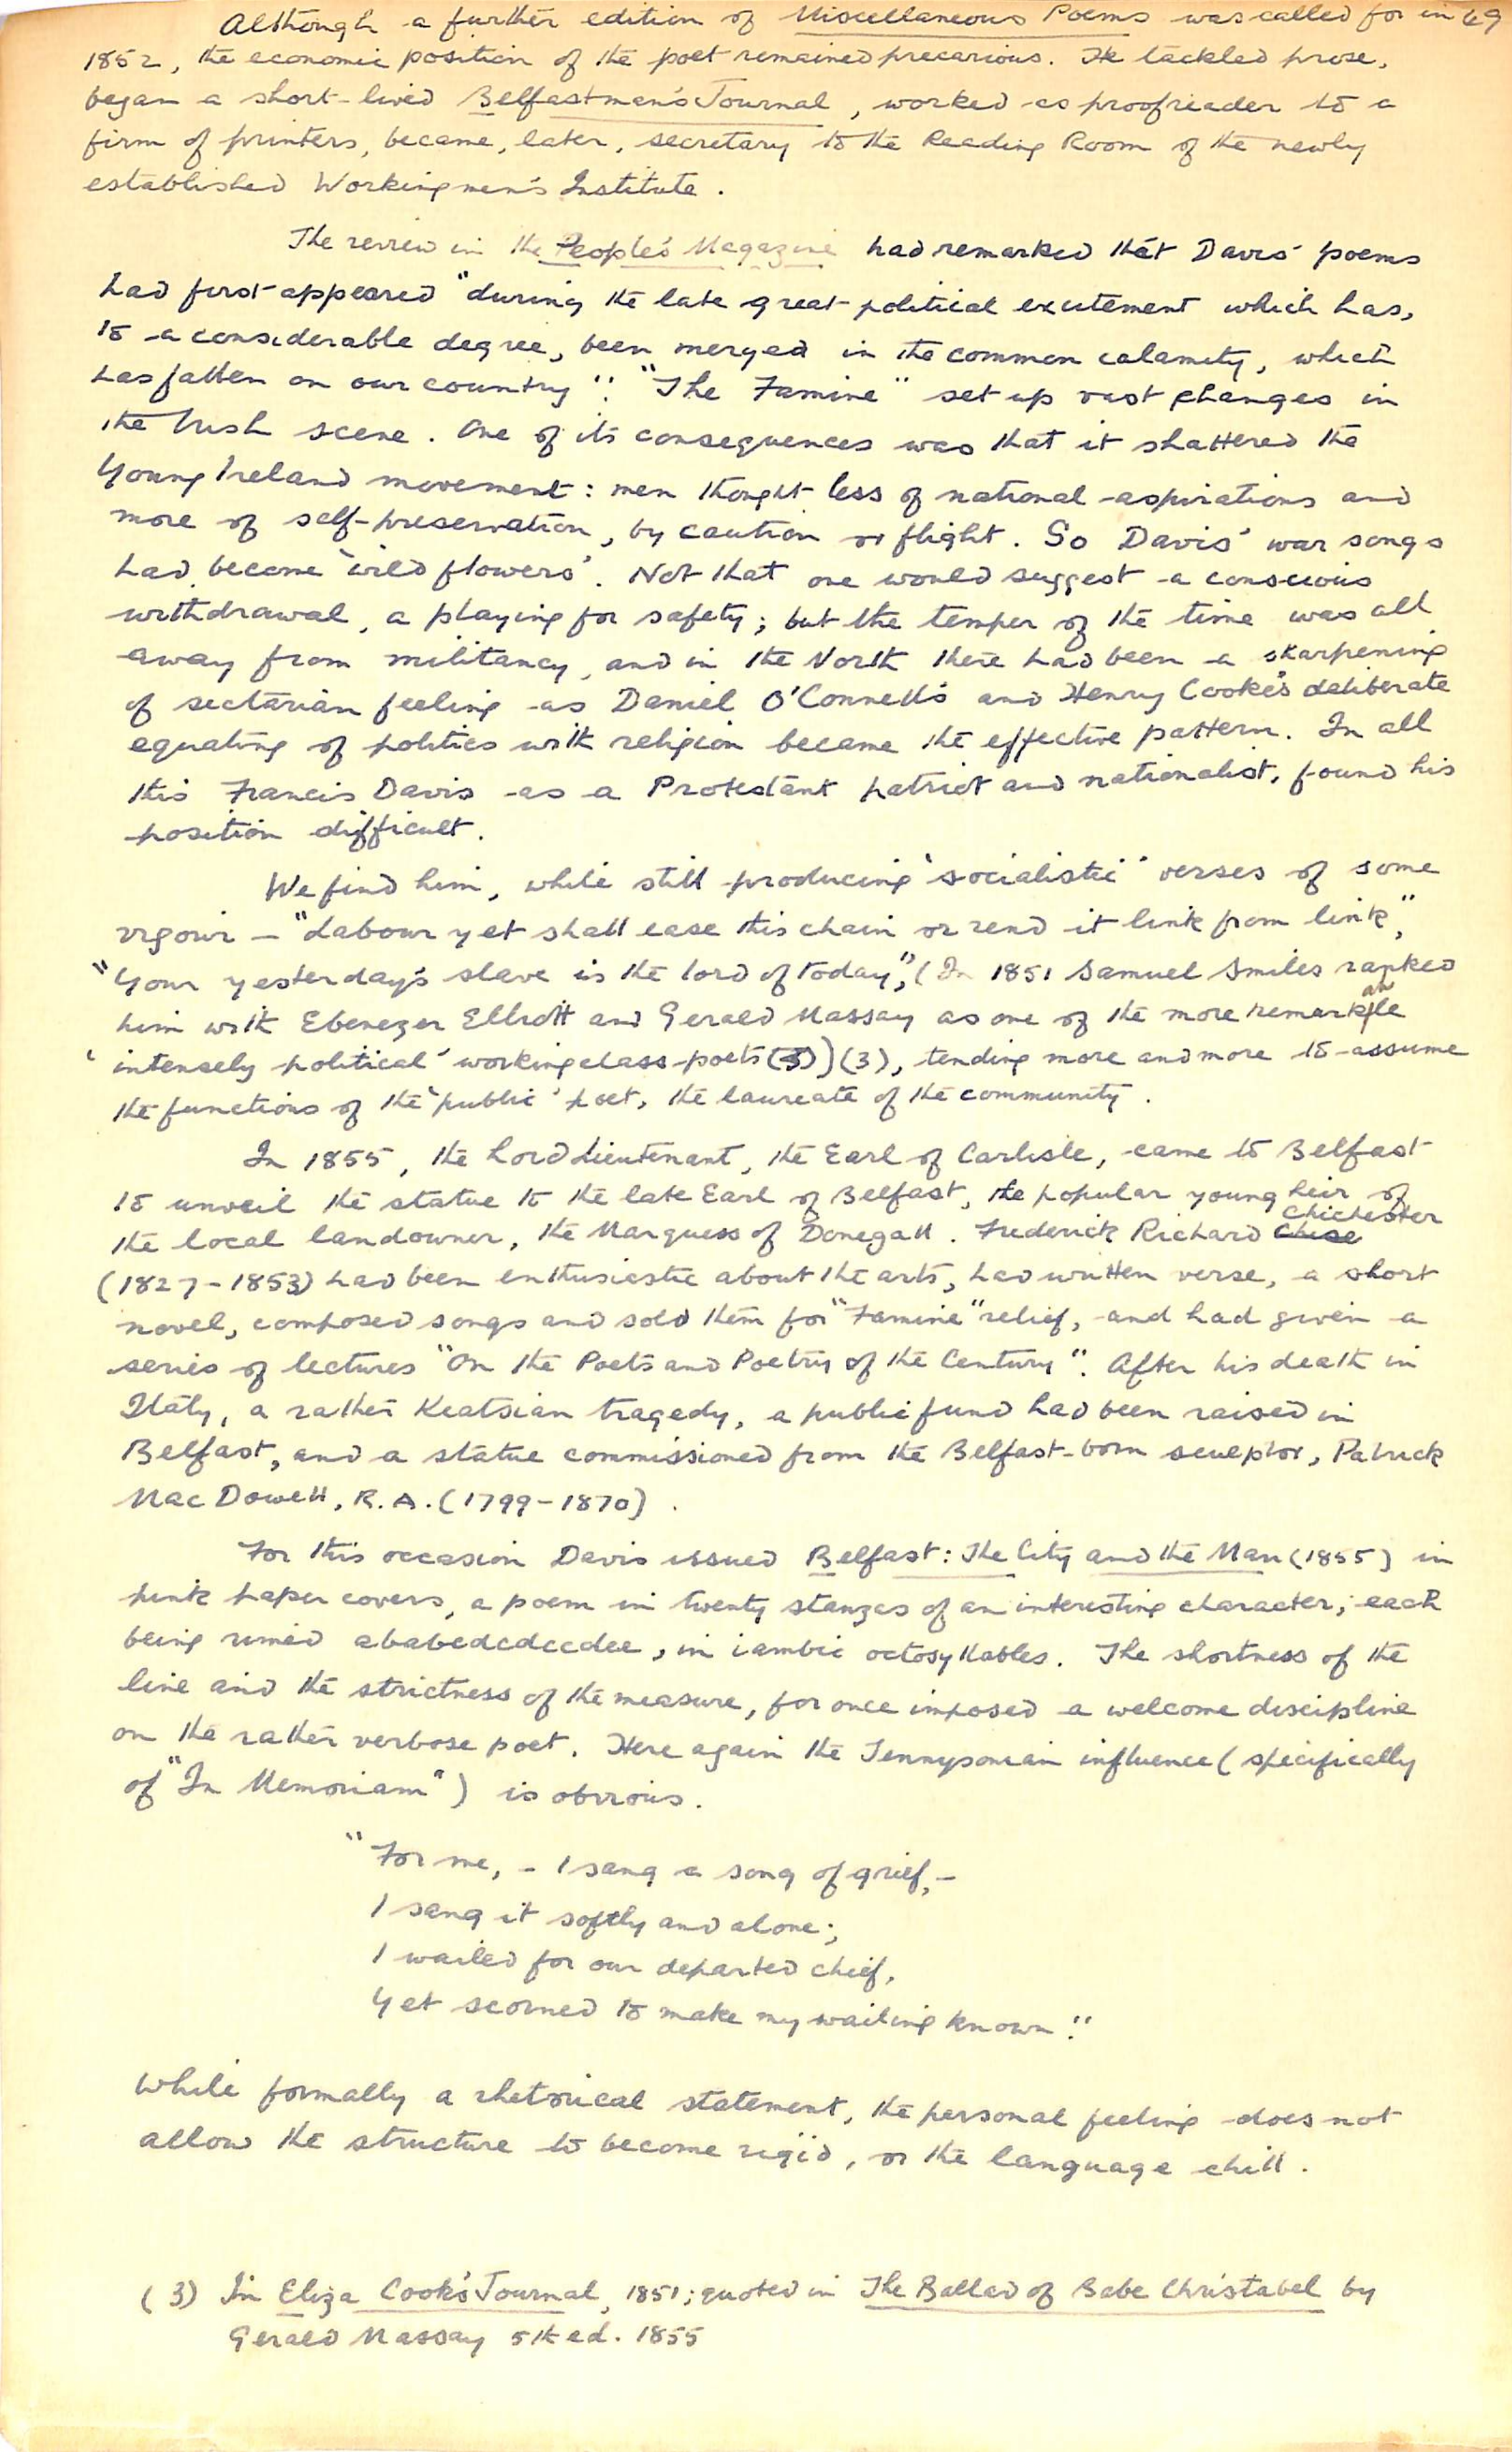 Although a further edition of Miscellaneous Poems was called for in 69
1852, the economic position of the poet remained precarious. He tackled prose,
began a short-lived Belfastmen's Journal, worked as proofreader to a
firm of printers, became, later, secretary to the Reading Room of the newly
established Workingmen's Institute.
The review in the People's Magazine had remarked that Davis' poems
had first appeared "during the late great political excitement which has,
to a considerable degree, been merged in the common calamity, which
has fallen on our country". "The Famine" set up vast changes in
the Irish scene. One of its consequences was that it shattered the
Young Ireland movement: men thought less of national aspirations and
more of self-preservation, by caution or flight. So Davis' war songs
had become 'wild flowers'. Not that one would suggest a conscious
withdrawal, a playing for safety; but the temper of the time was all
away from militancy, and in the North there had been a sharpening
of sectarian feeling as Daniel O'Connell's and Henry Cooke's deliberate
equating of politics with religion became the effective pattern. In all
this Francis Davis as a Protestant patriot and nationalist, found his
position difficult.
We find him, while still producing 'socialistic' verses of some
vigour – "Labour yet shall ease this chain or rend it link from link",
"Your yesterday's slave is the lord of today", (In 1851 Samuel Smiles ranked
him with Ebenezer Elliott and Gerald Massay as one of the more remarkable
'intensely political' working class poets (3)) (3), tending more and more to assume
the functions of the 'public' poet, the laureate of the community.
In 1855, the Lord Lieutenant, the Earl of Carlisle, came to Belfast
to unveil the statue to the late Earl of Belfast, the popular young heir of
the local landowner, the Marquess of Donegall. Frederick Richard Chise Chichester
(1827-1853) had been enthusiastic about the arts, had written verse, a short
novel, composed songs and sold them for "Famine" relief, and had given a
series of lectures "On the Poets and Poetry of the Century". After his death in
Italy, a rather Keatsian tragedy, a public fund had been raised in
Belfast, and a statue commissioned from the Belfast-born sculptor, Patrick
MacDowell, R.A. (1799-1870).
For this occasion Davis issued Belfast: The City and the Man (1855) in
pink paper covers, a poem in twenty stanzas of an interesting character; each
being rimed ababcdcdccdcc, in iambic octosyllables. The shortness of the
line and the strictness of the measure, for once imposed a welcome discipline
on the rather verbose poet. Here again the Tennysonian influence (specifically
of "In Memoriam") is obvious.
"For me, – I sang a song of grief, –
I sang it softly and alone;
I wailed for our departed chief,
Yet scorned to make my wailing known".
While formally a rhetorical statement, the personal feeling does not
allow the structure to become rigid, or the language chill.
(3) In Eliza Cook's Journal, 1851; quoted in The Ballad of Babe Christabel by
Gerald Massay 5th ed. 1855